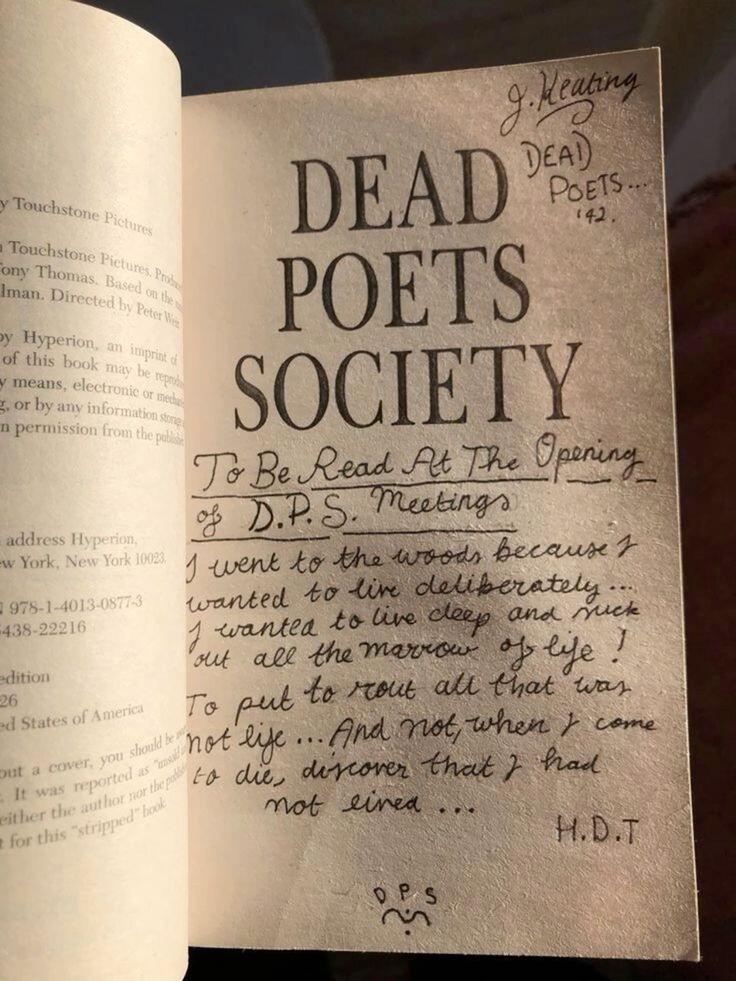 y Touchstone Pictures
Touchstone Pictures. Produ
ony Thomas. Based on the
lman. Directed by Peter Weir
by Hyperion, an imprint of
of this book may be reprodu
y means, electronic or mecha
g, or by any information storage
n permission from the publishe
address Hyperion,
ew York, New York 10023.
978-1-4013-0877-3
438-22216
edition
26
ed States of America
out a cover, you should be
. It was reported as "unsold
either the author nor the publish
t for this "stripped" book.
J. Keating
DEAD
POETS...
'42.
DEAD
POETS
SOCIETY
To Be Read At The Opening
of D.P.S. Meetings
I went to the woods because I
wanted to live deliberately...
I wanted to live deep and suck
out all the marrow of life!
To put to rout all that was
not life... And not, when I come
to die, discover that I had
not lived...
H.D.T
D P S